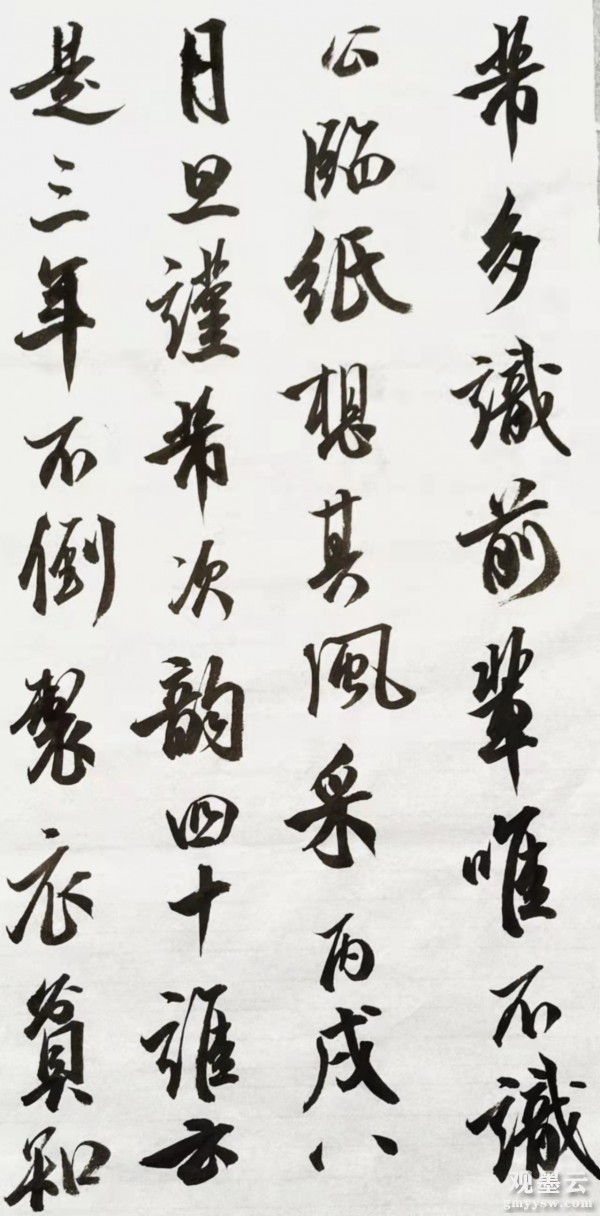 芾多識前輩唯不識
公臨紙想其風采丙戌八
月旦謹芾次韵四十誰云
是三年不倒製衣貧知
观墨云
gmyysw.com